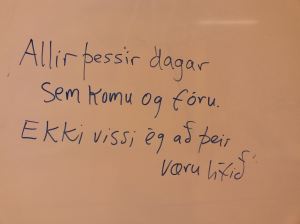 Allir þessir dagar
sem komu og fóru.
Ekki vissi ég að þeir
væru lífið